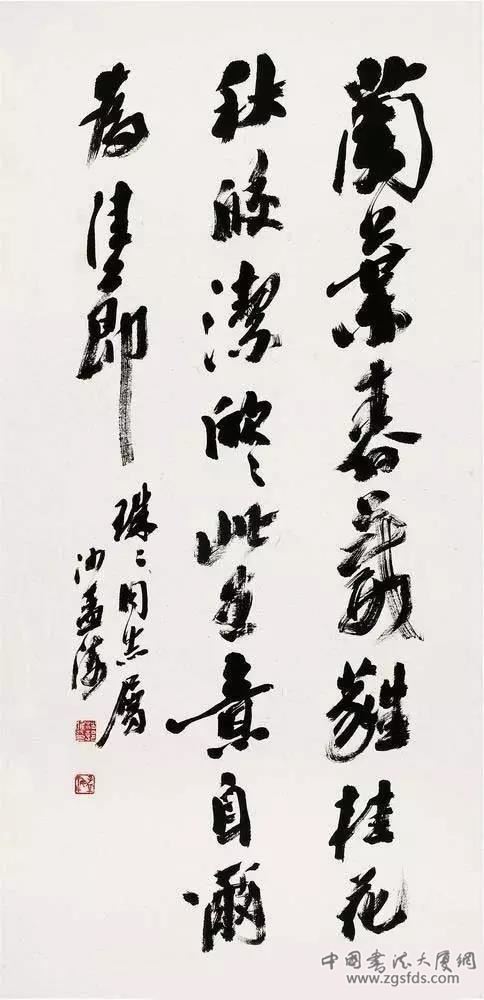 蘭葉春葳蕤桂花
秋皎潔欣欣此生意自爾
為佳節
珠珠同志屬
沙孟海
中国书法大厦網
www.zgsfds.com